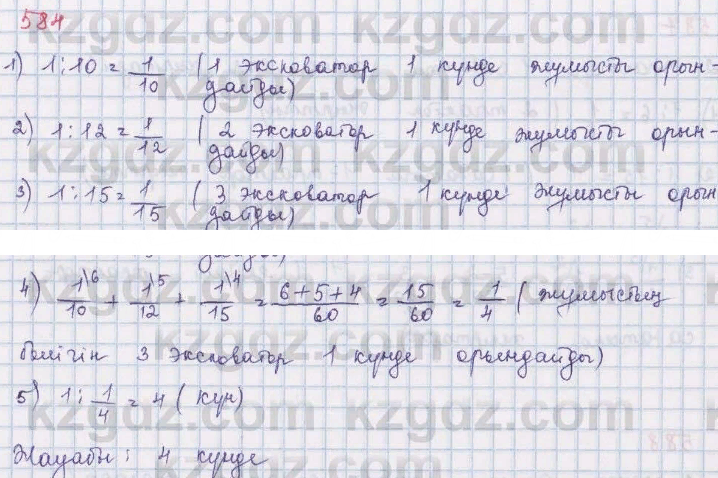 584
1) 1:10 = 1/10 (1 эксковатор 1 күнде жұмысты орын-
дайды)
2) 1:12 = 1/12 (2 эксковатор 1 күнде жұмысты орын-
дайды)
3) 1:15 = 1/15 (3 эксковатор 1 күнде жұмысты орын
дайды)
4) 1\6/10 + 1\5/12 + 1\4/15 = 6+5+4/60 = 15/60 = 1/4 (жұмыстың
бөлігін 3 эксковатор 1 күнде орындайды)
5) 1:1/4 = 4 (күн)
Жауабы: 4 күнде
kzgdz.com